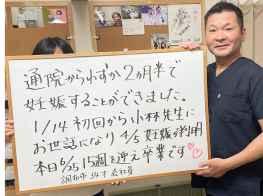 通院からわずか2ヵ月半で
妊娠することができました。
1/14 初回から小林先生に
お世話になり 4/5 妊娠が判明
本日6/25 15週を迎え卒業です
調布市 34才 会社員